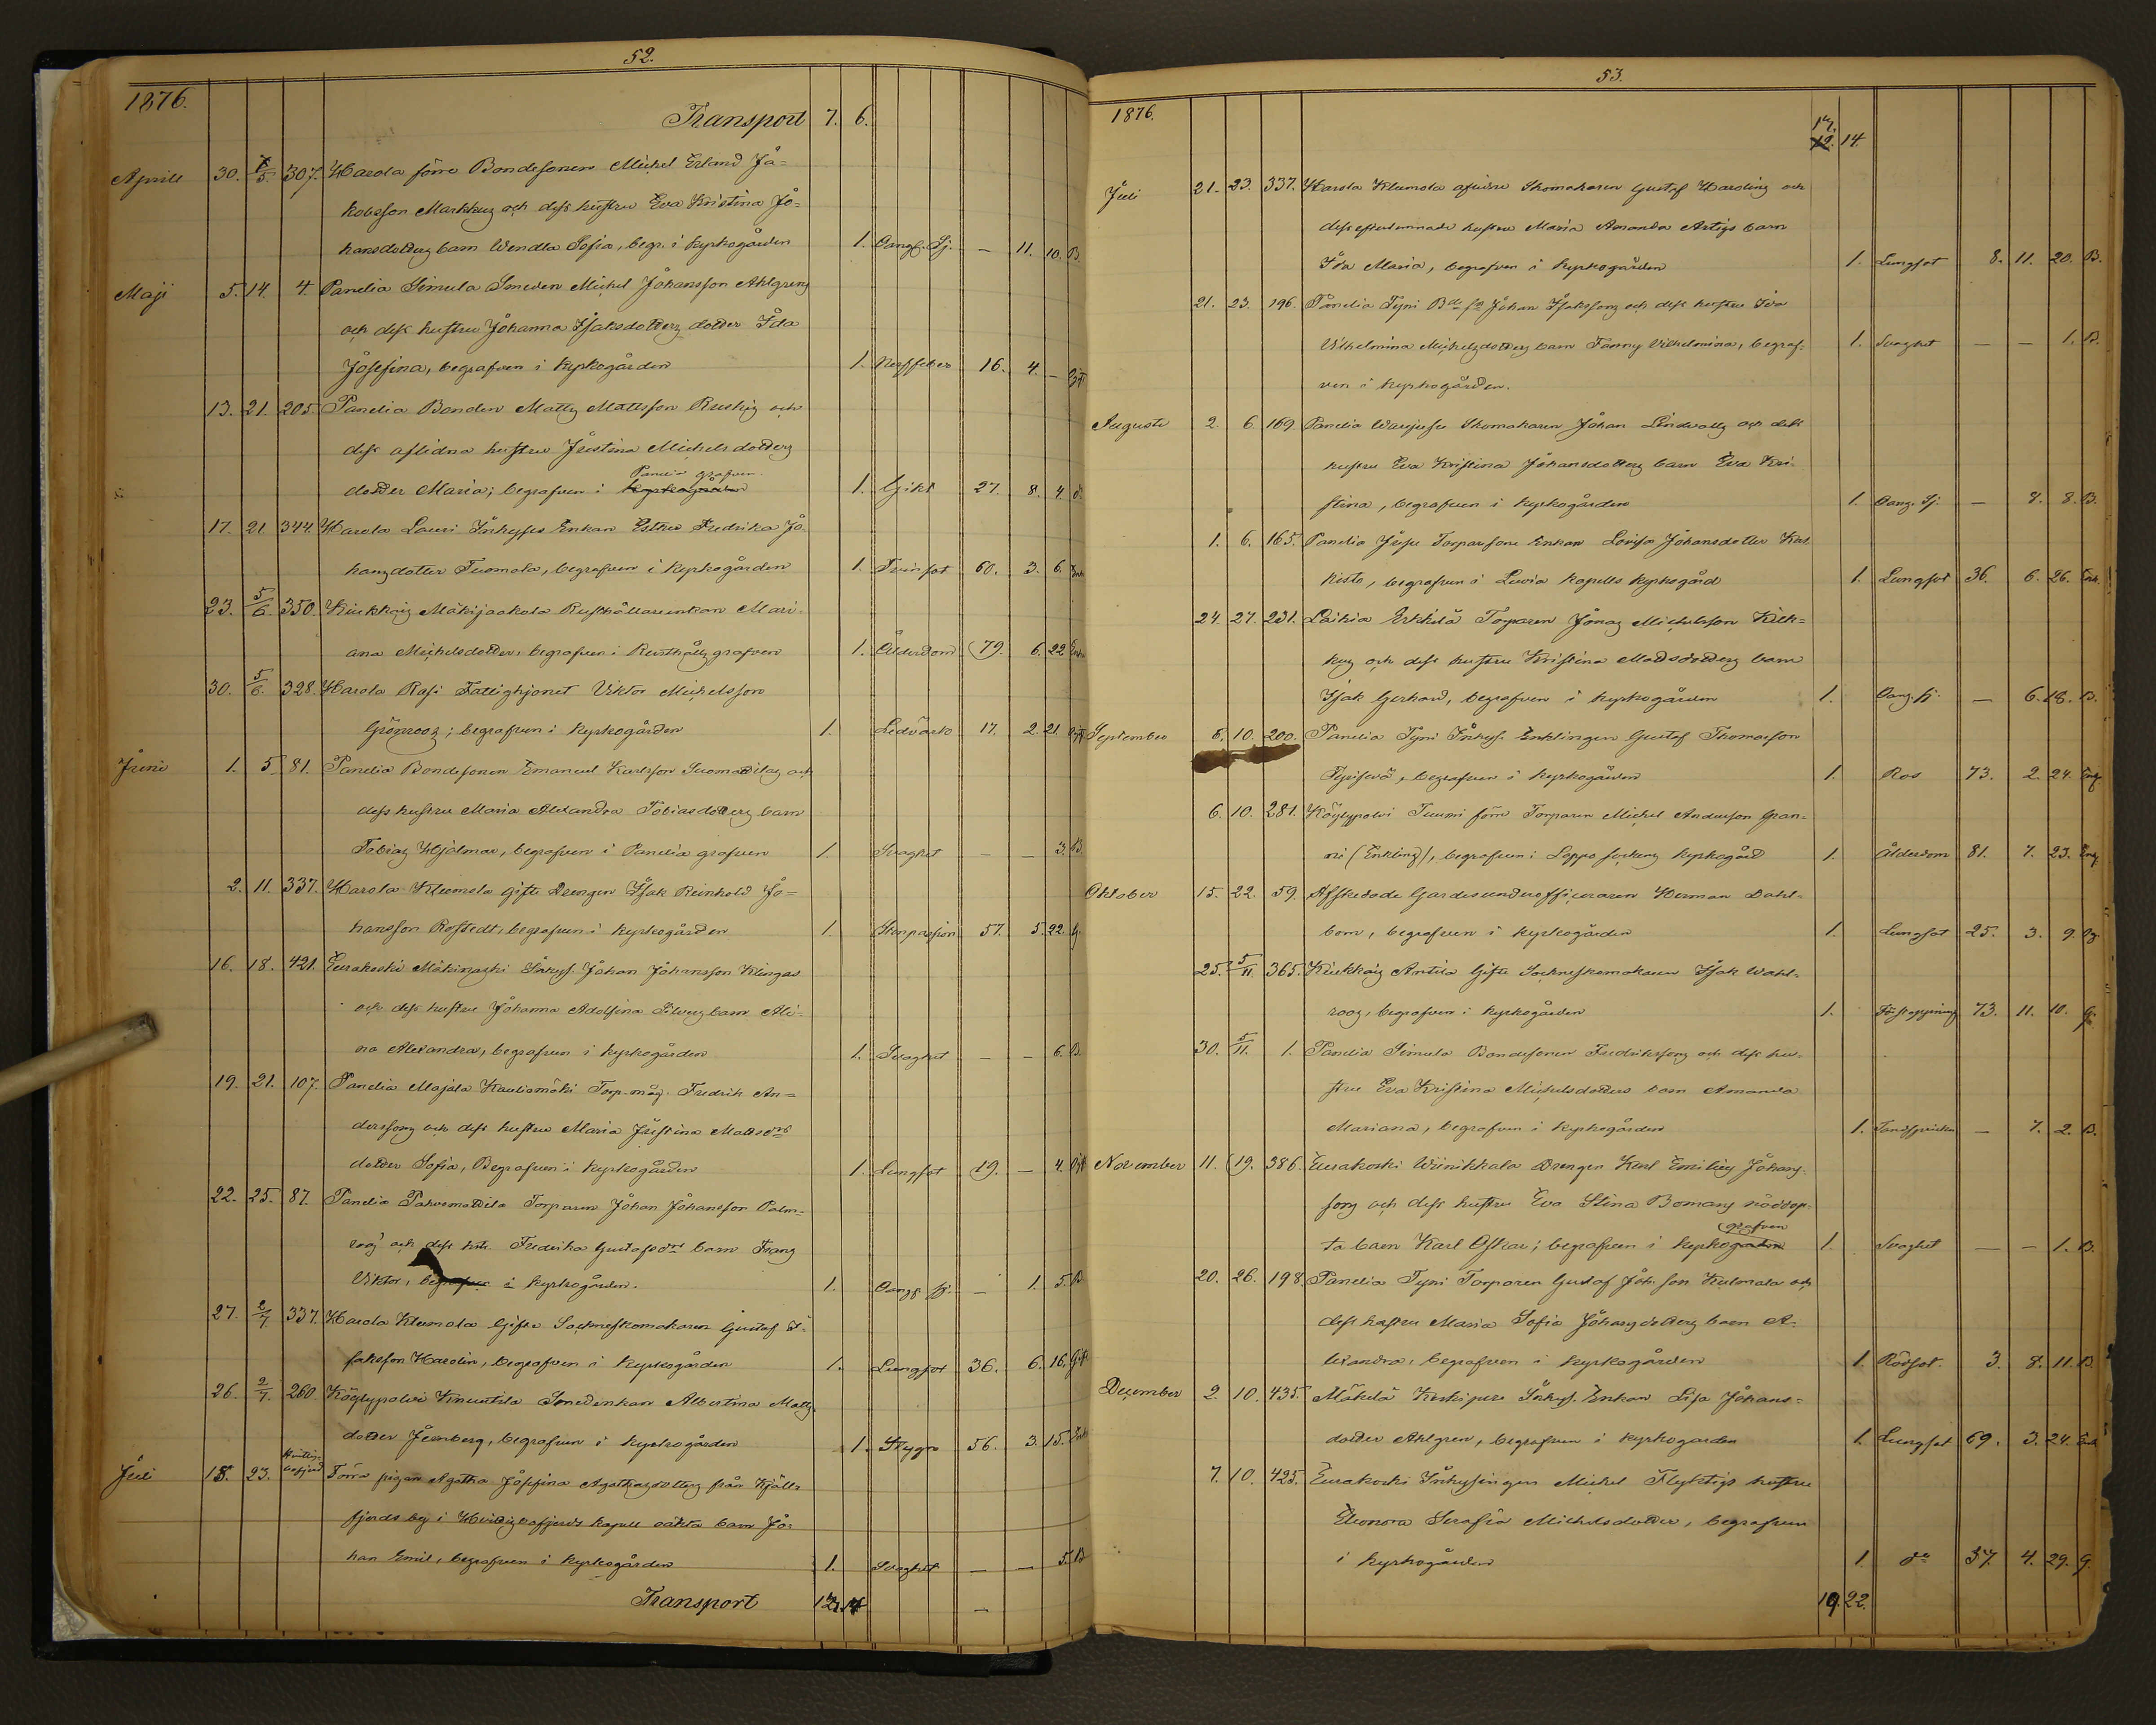 52.
1876.
Transport 7. 6.
Aprill 30. 5. 307. Harola förre Bondesonen Michel Erland Ja=
kobsson Markkus och dess hustru Eva Kristina Jo=
hansdotters barn Wendla Sofia, begr. i kyrkogården 1. Oang. Sj. — 11. 10. B.
Maji 5. 14. 4. Panelia Simula Smeden Michel Johansson Ahlgrens
och dess hustru Johanna Isaksdotters dotter Ida
Josefina, begrafven i kyrkogården 1. Nerffeber 16. 4. —
13. 21. 205. Panelia Bonden Matts Mattsson Ruskis och
dess aflidna hustru Justina Michelsdotters
Panelia grafven
dotter Maria; begrafven i kyrkogården 1. Gikt 27. 8. 4.
17. 21. 344. Harola Lauri Inhyses Enkan Esther Fredrika Jo=
hansdotter Tuomola, begrafven i kyrkogården 1. Tvinsot 60. 3. 6. Enk
23. 5/6. 350. Kiukkais Mäkijaakola Rusthållareenkan Mari=
ana Michelsdotter, begrafven i Rusthålls grafven 1. Ålderdom 79. 6. 22 Enk
30. 5/6. 328. Harola Rasi Fattighjonet Viktor Michelsson
Grönroos; begrafven i kyrkogården 1. Ledvärk 17. 2. 21.
Juni 1. 5. 81. Panelia Bondesonen Emanuel Karlsson Tuomattilas och
dess hustru Maria Alexandra Tobiasdotters barn
Tobias Hjalmar, begrafven i Panelia grafven 1. Svaghet — — 3. B.
2. 11. 337. Harola Klemola Gifte Drengen Isak Reinhold Jo=
hansson Rostedt, begrafven i kyrkogården 1. Stenpassion 57. 5. 22. G.
16. 18. 421. Eurakoski Mäkinaski Inhys. Johan Johansson Klingas
och dess hustru Johanna Adolfina Silvers barn Ali=
na Alexandra, begrafven i kyrkogården 1. Svaghet — — 6. B.
19. 21. 107. Panelia Majala Kautiomäki Torp.måg. Fredrik An=
derssons och dess hustru Maria Justina Mattsdrs
dotter Sofia, Begrafven i kyrkogården 1. Lungsot 19. — 4.
22. 25. 87. Panelia Pahvomattila Torparen Johan Johansson Palm=
roos' och dess hstr. Fredrika Gustafsdrs barn Frans
Viktor, begrafven i kyrkogården. 1. Oang. sj. — 1. 5. B.
27. 2/7. 337. Harola Klemola Gifte Sockneskomakaren Gustaf I=
saksson Harolin, begrafven i kyrkogården 1. Lungsot 36. 6. 16. Gift
26. 2/7. 260. Köylypolvi Knuutila Smedenkan Albertina Matts
dotter Jernberg, begrafven i kyrkogården 1. Stygn 56. 3. 15. Enk
Juli 18. 23. Förra pigan Agatha Josefina Agathasdotters från Kjälls
fjerds by i Hvittisbofjerds kapell oäkta barn Jo=
han Emil, begrafven i kyrkogården 1. Svaghet — — 5. B
Transport 12. 14
53.
1876.
17. 12. 14.
Juli 21. 23. 337. Harola Klemola aflidne Skomakaren Gustaf Harolins och
dess efterlemnade hustru Maria Amanda Artigs barn
Ida Maria, begrafven i kyrkogården 1. Lungsot 8. 11. 20. B.
21. 23. 196. Panelia Tyni Bde sn Johan Isakssons och dess hustru Eva
Vilhelmina Michelsdotters barn Fanny Vilhelmina, begraf=
ven i kyrkogården. 1. Svaghet — — 1. B.
Augusti 2. 6. 169. Panelia Skomakaren Johan Lindvalls och dess
hustru Eva Kristina Johansdotters barn Eva Kri=
stina, begrafven i kyrkogården 1. Oang. Sj. — 7. 8. B.
1. 6. 165. Panelia Juse Torpareson Enkan Lovisa Johansdotter
kisto, begrafven i Luvia Kapells kyrkogård 1. Lungsot 36. 6. 26. Enk.
24. 27. 231. Laihia Erkkilä Torparen Jonas Michelsson
kus och dess hustru Kristina Mattsdotters barn
Isak Gerhard, begrafven i kyrkogården 1. Oang. sj. — 6. 18. B.
September 6. 10. 200. Panelia Tyni Inhys. Enklingen Gustaf Thomasson
begrafven i kyrkogården 1. Ros 73. 2. 24. Enkl
6. 10. 281. Köylypolvi Tuomi förre Torparen Michel Andersson Gran=
ni (Enkling), begrafven i Loppo sockens kyrkogård 1. Ålderdom 81. 7. 23. Enkl
Oktober 15. 22. 59. Afskedade Gardesunderofficeraren Herman Dahl=
bom, begrafven i kyrkogården 1. Lungsot 25. 3. 9.
25. 5/11. 365. Kiukkais Antila Gifte Sockneskomakaren Isak Wahl=
roos, begrafven i kyrkogården 1. Förstoppning 73. 11. 10. G.
30. 5/11. 1. Panelia Simula Bondesonen Fredrikssons och dess hu=
stru Eva Kristina Michelsdotters barn Amanda
Mariana, begrafven i kyrkogården 1. Tandsprickn — 7. 2. B.
November 11. 19. 386. Eurakoski Wiinikkala Drengen Karl Emilius Johans=
sons och dess hustru Eva Stina Bomans nöddöp=
grafven
ta barn Karl Oskar; begrafven i kyrkogården 1. Svaghet — — 1. B.
20. 26. 198. Panelia Tyni Torparen Gustaf Joh. son Kulmala och
dess hustru Maria Sofia Johansdotters barn A=
lexandra, begrafven i kyrkogården 1. Rödsot. 3. 8. 11. B.
December 2. 10. 435. Mäkelä Koskipere Inhys. Enkan Lisa Johans=
dotter Ahlgren, begrafven i kyrkogården 1. Lungsot 69. 3. 24. Enk
7. 10. 425. Eurakoski Inhysingen Michel Flyktigs hustru
Eleonora Serafia Michelsdotter, begrafven
i kyrkogården 1. do 37. 4. 29. G.
19. 22.